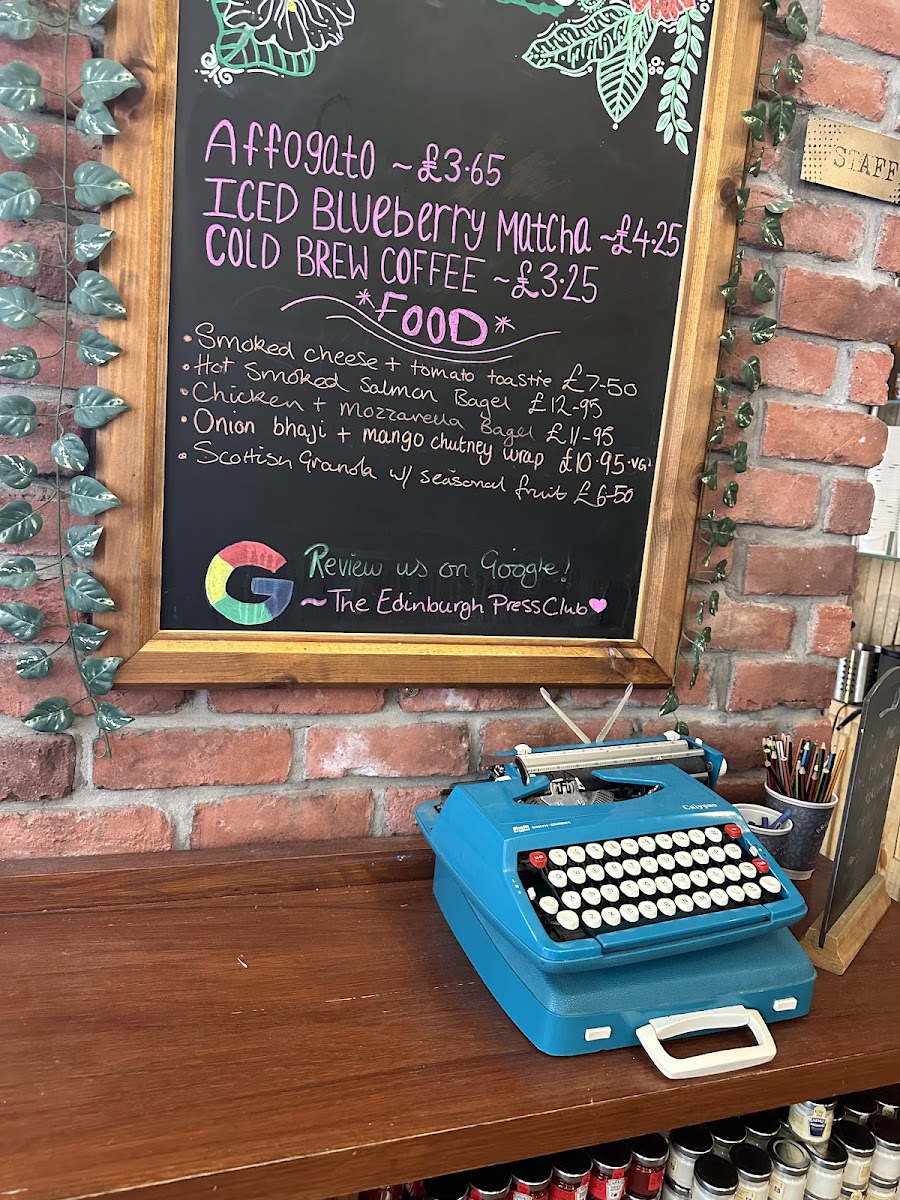 Affogato ~£3.65
STAFF
ICED BLUEberry MatcHa ~£4.25
COLD BREW COFFEE ~£3.25
*FOOD*
• Smoked cheese + tomato toastie £7-50
• Hot Smoked Salmon Bagel £12-95
• Chicken + Mozzarella Bagel £11-95
• Onion bhaji + mango chutney wrap £10.95 •VG•
• Scottish Granola w/ seasonal fruit £6-50
G Review us on Google!
~The Edinburgh Press Club♥
Calypso
SCM SMITH-CORONA